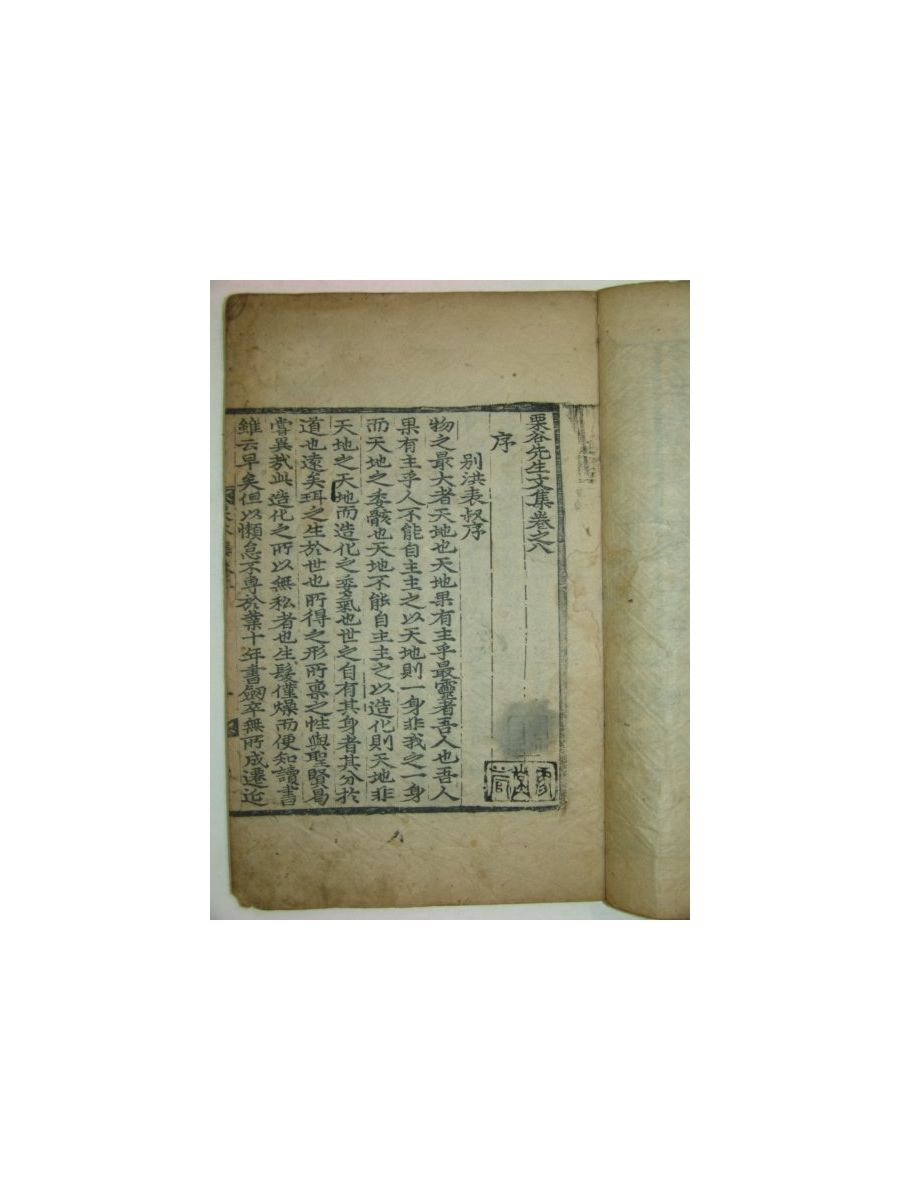 栗谷先生文集卷之八
序
別洪表叔序
物之最大者天地也天地果有主乎最靈者吾人也吾人
果有主乎人不能自主主之以天地則一身非我之一身
而天地之委骸也天地不能自主主之以造化則天地非
天地之天地而造化之委氣也世之自有其身者其分於
道也遠矣珥之生於世也所得之形所禀之性與聖賢曷
嘗異哉此造化之所以無私者也生髮僅燥而便知讀書
雖云早矣但以懶怠不專於業十年書劒卒無所成遷延